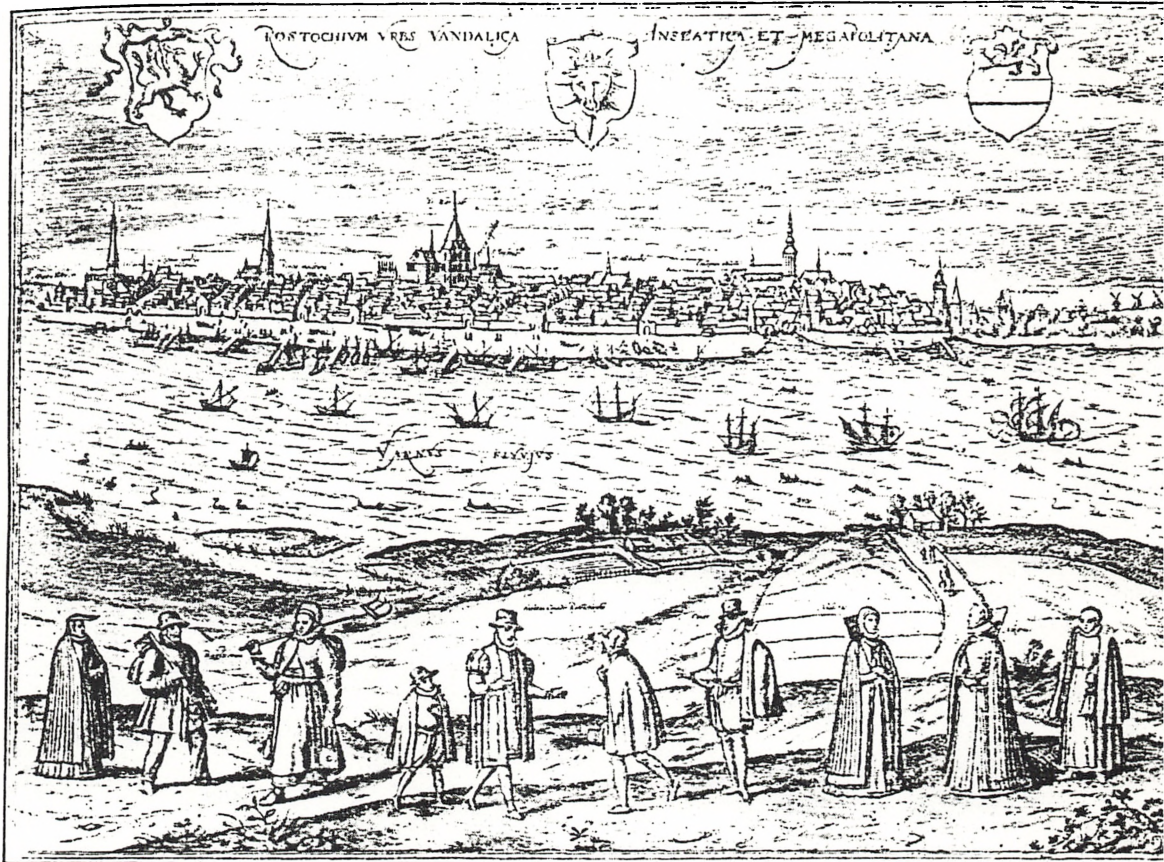 ROSTOCHIVM VRBS VANDALICA
ANSEATICA ET MEGAPOLITANA
VARNVS FLVVIVS